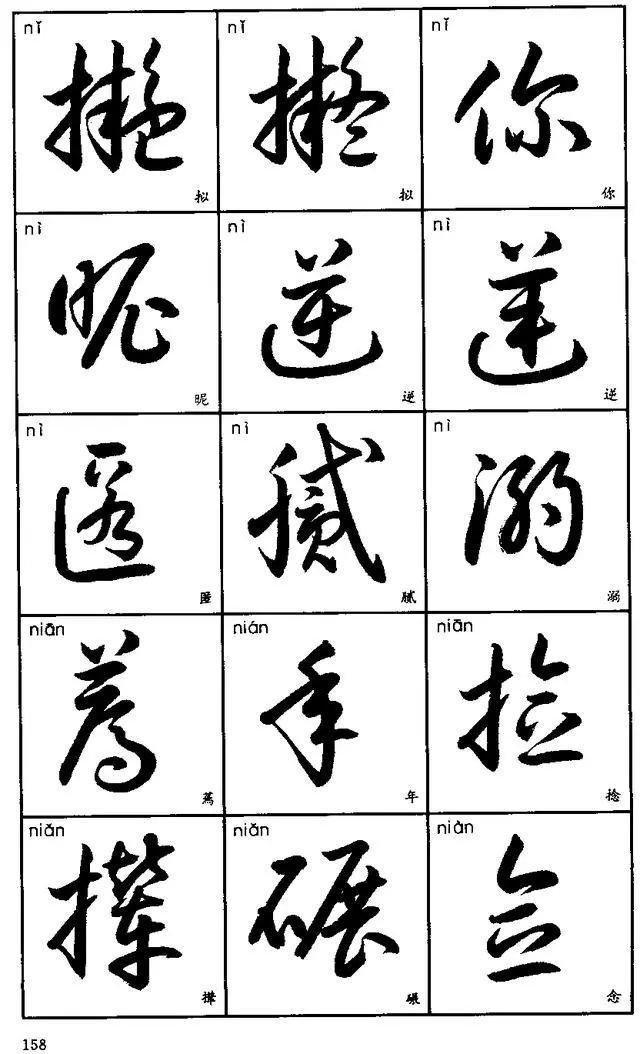 nǐ nǐ nǐ
擬 擬 你
拟 拟 你
nì nì nì
昵 逆 逆
昵 逆 逆
nì nì nì
匿 膩 溺
匿 腻 溺
niān nián niān
蔫 年 捻
蔫 年 捻
niǎn niǎn niàn
攆 碾 念
撵 碾 念
158